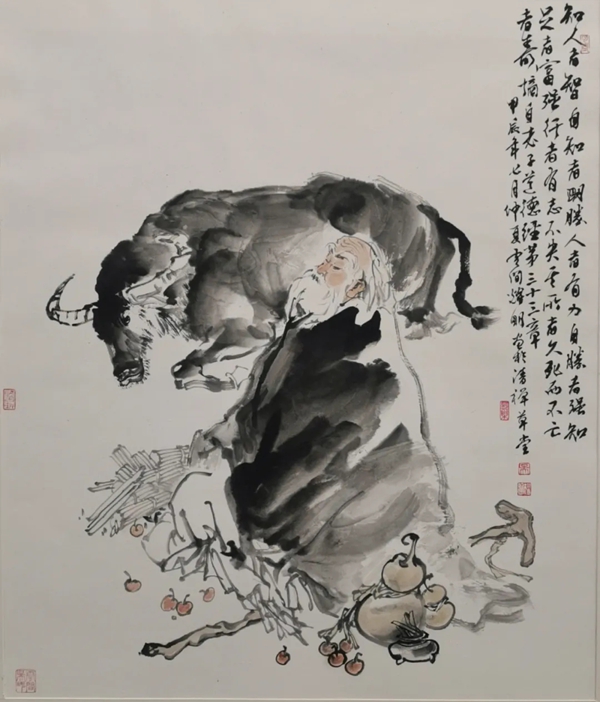 知人者智自知者明勝人者有力自勝者强知
足者富强行者有志不失其所者久死而不亡
者壽摘自老子道德經第三十三章
甲辰年七月仲夏雲間明画於禪草堂